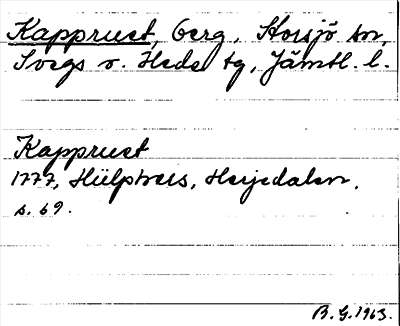 Kappruet, berg, Storsjö sn,
Svegs o. Heds tg, Jämtl. l.
Kappruet
1777, Hülphers, Herjedalen,
s. 69.
B. G. 1963.